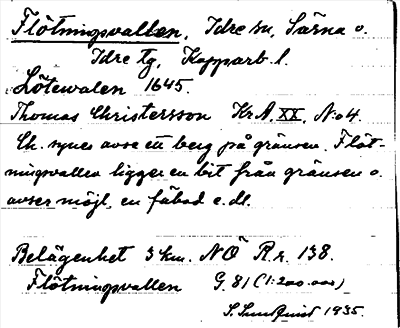 Flötningsvallen, Idre sn, Särna o.
Idre tg, Kopparb. l.
Lötewalen 1645.
Thomas Christersson Kr.A. XX, N:o 4.
Ch. synes avse ett berg på gränsen. Flöt-
ningsvallen ligger en bit från gränsen o.
avser möjl. en fäbod e.dl.
Belägenhet 3 km. NO R.r. 138.
Flötningsvallen G. 81 (1:200.000)
S. Sundquist 1935.